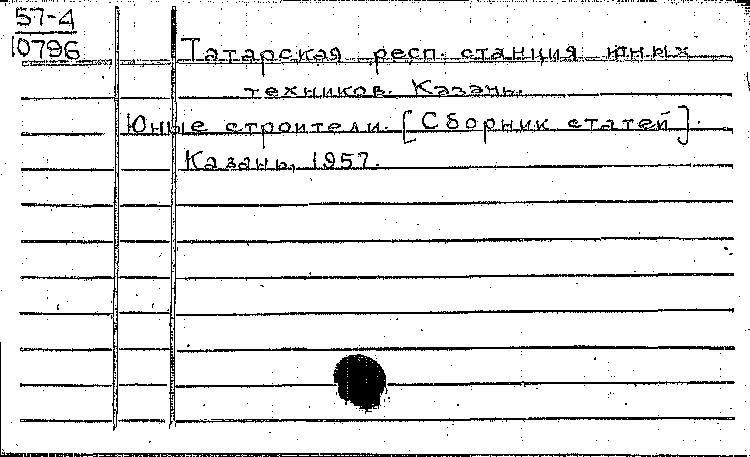 57-4
10796
Татарская респ. станция юных
техников. Казань.
Юные строители. [Сборник статей].
Казань, 1957.